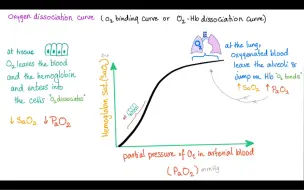 Oxygen dissociation curve (O₂ binding curve or O₂-Hb dissociation curve)
at tissue
O₂ leaves the blood
and the hemoglobin
and enters into
the cells "O₂ dissociates"
↓ SaO₂ ↓ PaO₂
Hemoglobin sat. (SaO₂)
at the lung,
oxygenated blood
leave the alveoli &
jump on Hb "O₂ binds"
↑ SaO₂ ↑ PaO₂
partial pressure of O₂ in arterial blood
(PaO₂) mmHg